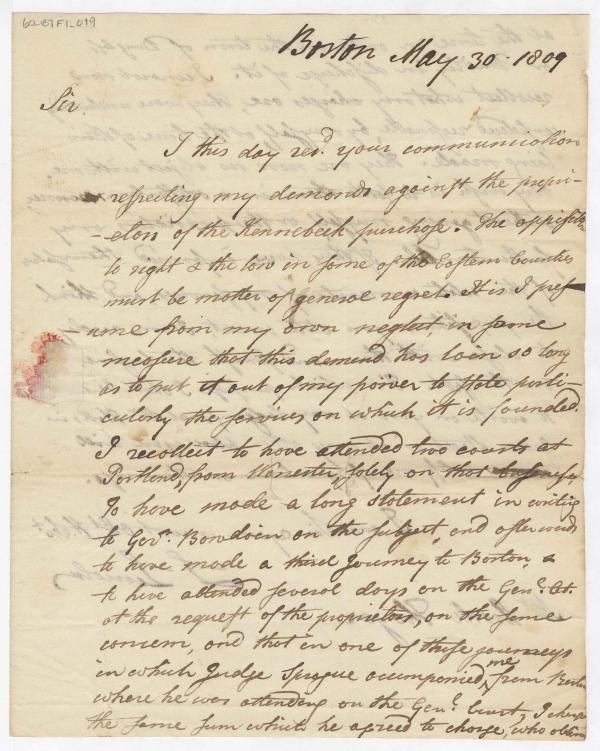 60-157 F1-019
Boston May 30. 1809
Sir.
I this day recd. your communication
respecting my demands against the propri-
-etors of the Kennebeck purchase. The opposition
to right & the law in some of the Eastern Counties
must be matter of general regret. It is I pres
ume from my own neglect in some
measure that this demand has lain so long
as to put it out of my power to state parti-
cularly the services on which it is founded.
I recollect to have attended two courts at
Portland, from Worcester, solely on that business
To have made a long statement in writing
to Govr. Bowdoin on the subject, and afterwards
to have made a third Journey to Boston, &
to have attended several days on the Genl. Ct.
at the request of the proprietors, on the same
concern, and that in one of these journeys
in which Judge Sprague accompanied me from Boston
where he was attending on the Genl. Court, I charge
the same sum which he agreed to charge, who